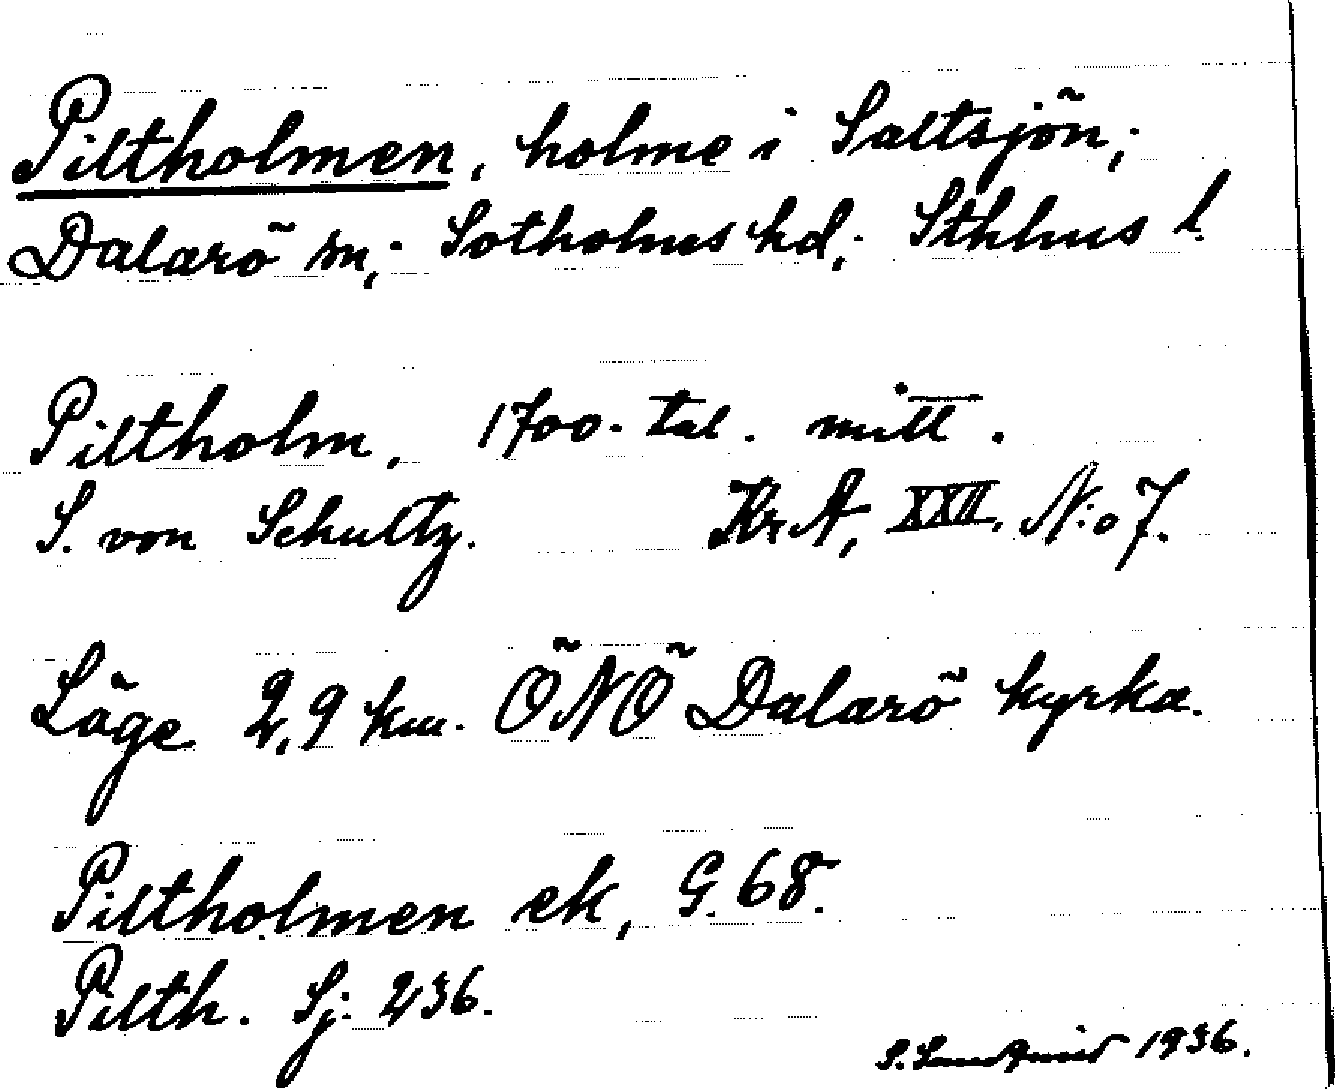 Piltholmen, holme i Saltsjön;
Dalarö sn; Sotholms hd; Sthlms l.
Piltholm, 1700-tal. mitt.
S. von Schultz. KrA, XXII, N:o 7.
Läge 2,9 km. ÖNÖ Dalarö kyrka.
Piltholmen ek, G. 68.
Pilth. Sj. 236.
1936.